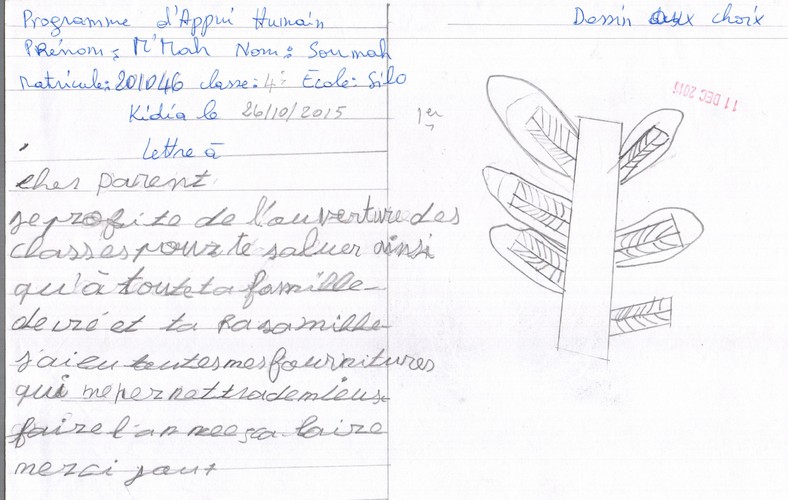 Programme d'Appui Humain
PRénom: M'Mah Nom: Soumah
Matricule: 201046 classe: 4è Ecole: Silo
Kidia le 26/10/2015
lettre à
cher parent
je profite de l'ouverture des
classes pour te saluer ainsi
qu'à toute ta famille
et ta
j'ai eu toutes mes fournitures
qui me permettra de mieux
faire l'annee sco laire
merci
Dessin aux choix
1er
11 DEC 2015